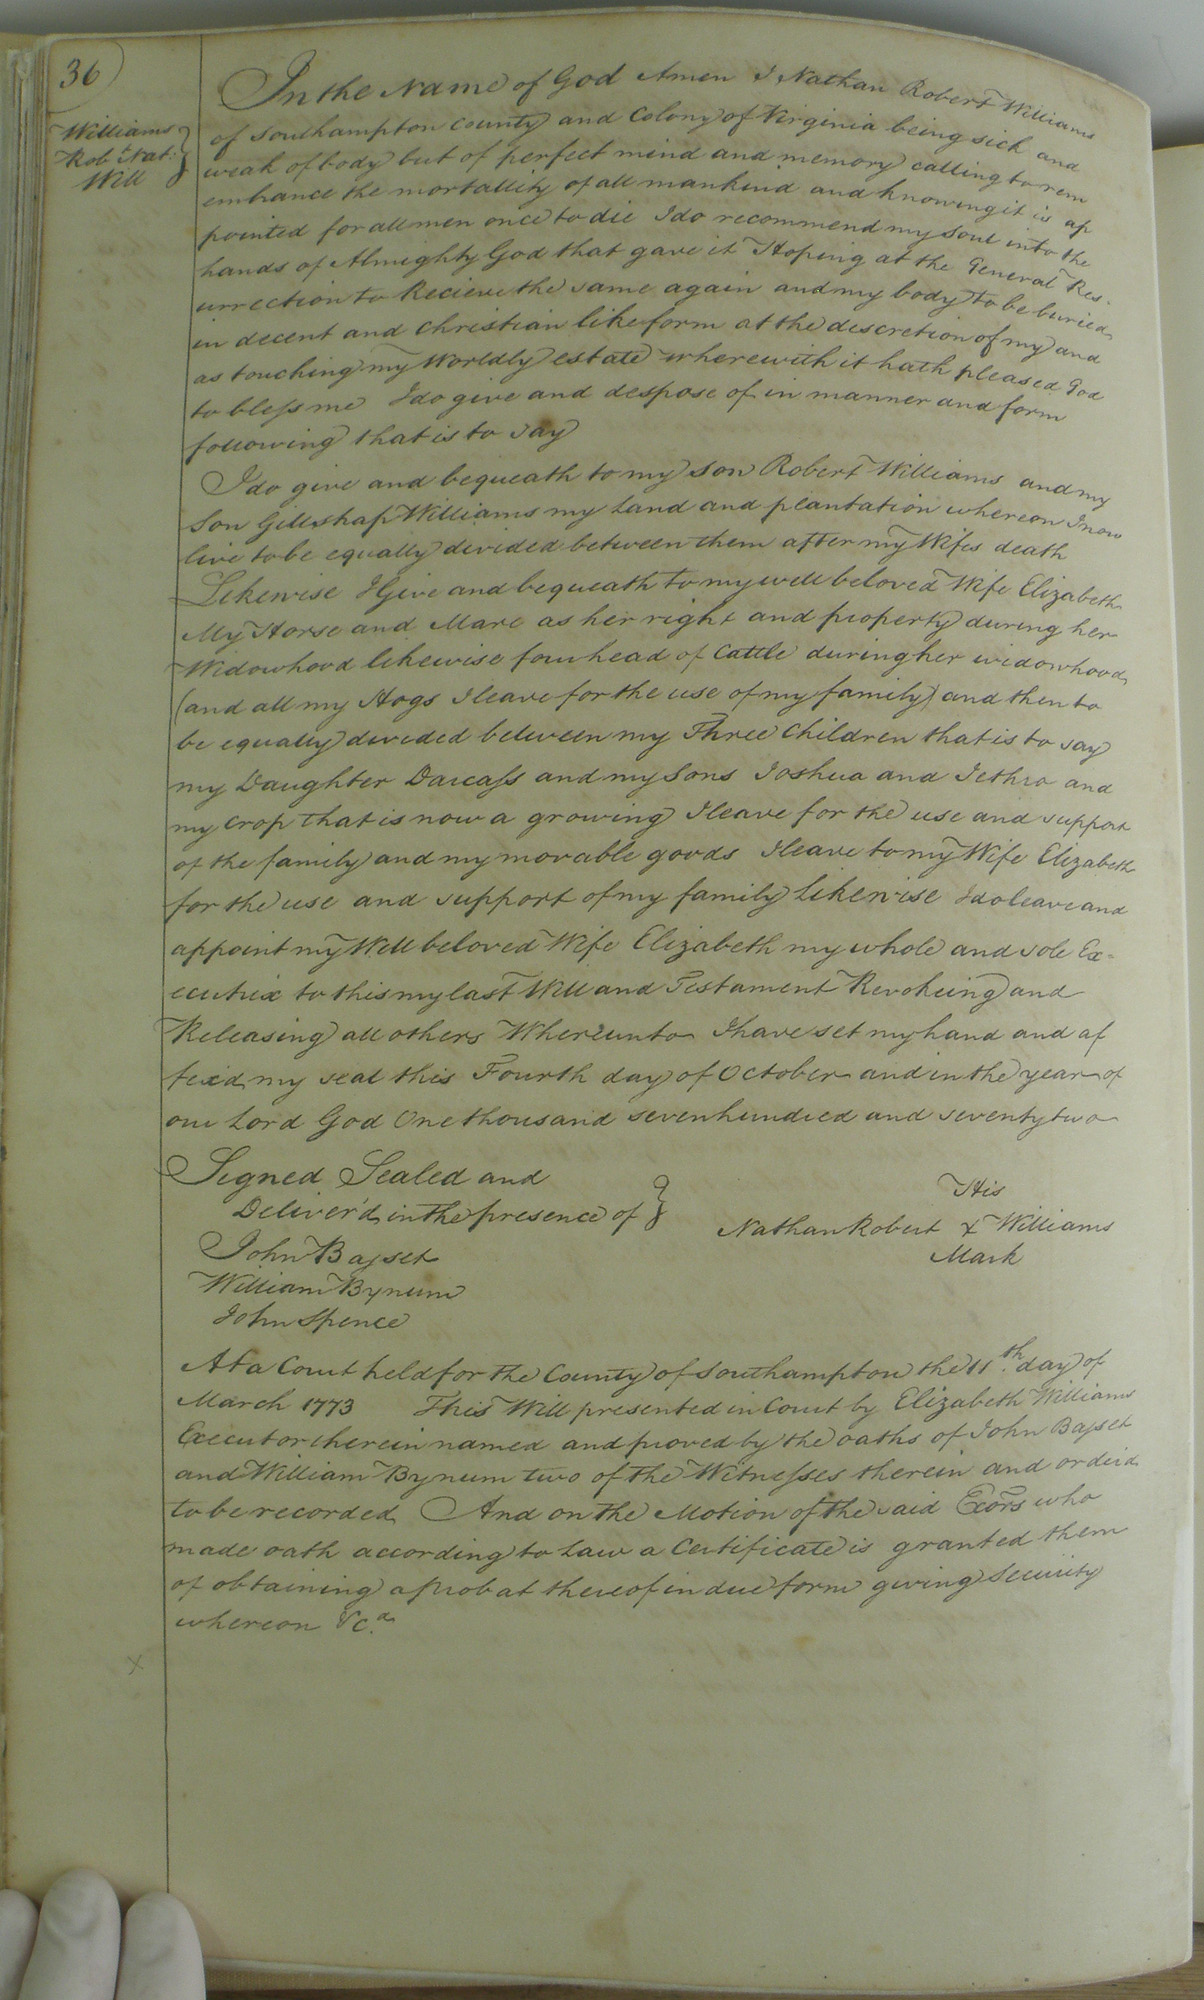 36
Williams
Robt Nat:
Will
In the Name of God Amen I Nathan Robert Williams
of Southampton County and Colony of Virginia being sick and
weak of body but of perfect mind and memory calling to rem
embrance the mortallity of all mankind and knowing it is ap
pointed for all men once to die I do recommend my Soul into the
hands of Almighty God that gave it Hoping at the General Res-
urrection to Recieve the same again and my body to be buried
in decent and Christian like form at the discretion of my and
as touching my Worldly estate wherewith it hath pleased God
to bless me I do give and despose of in manner and form
following that is to say
I do give and bequeath to my Son Robert Williams and my
Son Gillshap Williams my Land and plantation whereon I now
live to be equally divided between them after my Wifes death
Likewise I Give and bequeath to my well beloved Wife Elizabeth
My Horse and Mare as her right and property during her
Widowhood likewise four head of Cattle during her widowhood
(and all my Hogs I leave for the use of my family) and then to
be equally devided between my Three Children that is to say
my Daughter Darcass and my Sons Joshua and Jethro and
my crop that is now a growing I leave for the use and support
of the family and my movable goods I leave to my Wife Elizabeth
for the use and support of my family Likewise I do leave and
appoint my Well beloved Wife Elizabeth my whole and sole Ex-
ecutrix to this my last Will and Testament Revokeing and
Releasing all others Whereunto I have set my hand and af
fixd my seal this Fourth day of October and in the year of
our Lord God One thousand seven hundred and seventy two
Signed Sealed and
Deliver'd in the presence of
His
Nathan Robert X Williams
Mark
John Basset
William Bynum
John Spence
At a Court held for the County of Southampton the 11th day of
March 1773 This Will presented in Court by Elizabeth Williams
Executor therein named and proved by the oaths of John Basset
and William Bynum two of the Witnesses therein and orderd
to be recorded And on the Motion of the said Exors who
made oath according to Law a Certificate is granted them
of obtaining a probat thereof in due form giving Security
whereon &c.a
X